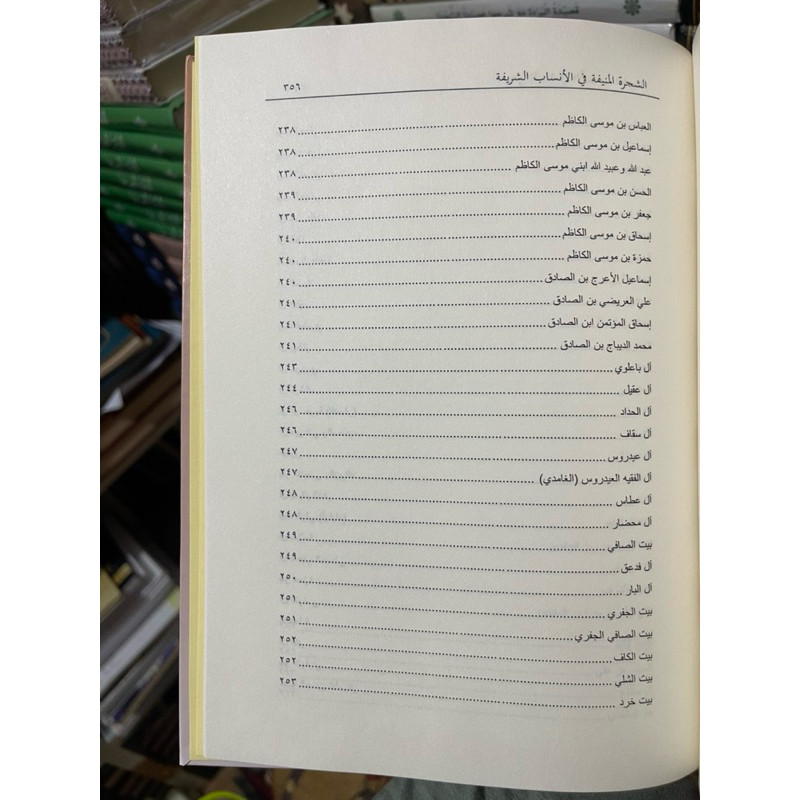 الشجرة المنيفة في الأنساب الشريفة ٣٥٦
العباس بن موسى الكاظم ٢٣٨
إسماعيل بن موسى الكاظم ٢٣٨
عبد الله وعبيد الله ابني موسى الكاظم ٢٣٨
الحسن بن موسى الكاظم ٢٣٩
جعفر بن موسى الكاظم ٢٣٩
إسحاق بن موسى الكاظم ٢٤٠
حمزة بن موسى الكاظم ٢٤٠
إسماعيل الأعرج بن الصادق ٢٤٠
علي العريضي بن الصادق ٢٤١
إسحاق المؤتمن ابن الصادق ٢٤١
محمد الديباج بن الصادق ٢٤١
آل باعلوي ٢٤٣
آل عقيل ٢٤٤
آل الحداد ٢٤٦
آل سقاف ٢٤٦
آل عيدروس ٢٤٧
آل الفقيه العيدروس (الغامدي) ٢٤٧
آل عطاس ٢٤٨
آل محضار ٢٤٨
بيت الصافي ٢٤٩
آل فدعق ٢٤٩
آل البار ٢٥٠
بيت الجفري ٢٥١
بيت الصافي الجفري ٢٥١
بيت الكاف ٢٥٢
بيت الشلي ٢٥٢
بيت خرد ٢٥٣